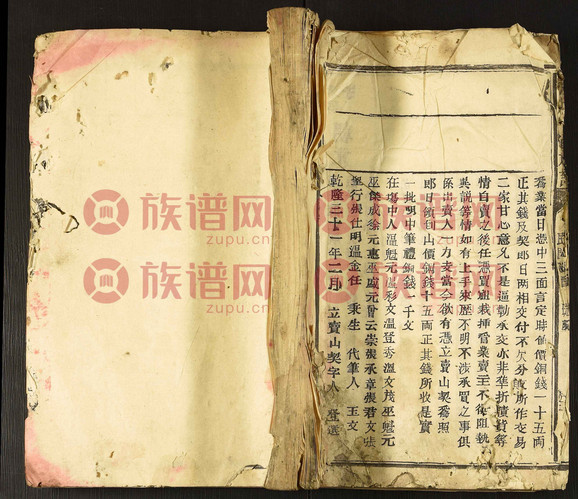 喬業當日憑中三面言定時值價銅錢一十五兩
正其錢及契即日兩相交付不欠分厘所作交易
二家甘心意允不是逼勒承交亦非準折債貨等
情自賣之後任憑買主栽插管業賣主不得阻執
異說等情如有上手來歷不明不涉承買之事俱
係出賣人一力支當今欲有憑立賣山契為照
即日領到山價銅錢十五兩正其錢所收是實
一批明中筆禮銅錢一千文
在場中人溫魁元 盧彩文溫登秀溫文茂巫魁元
巫傑成徐元惠巫處元曾云崇張承章張君文
里行張仕明溫金任 秉生 代筆人 王文
乾隆三十一年二月 立賣山契字人 登選
族谱网
zupu.cn
族谱网
zupu.cn
族谱网
zupu.cn
族谱网
zupu.cn